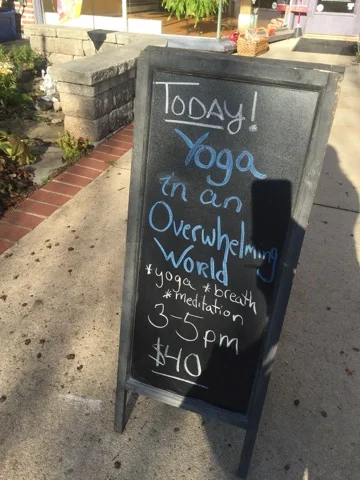 TODAY!
Yoga
in an
Overwhelming
World
*yoga *breath
*meditation
3-5pm
$40